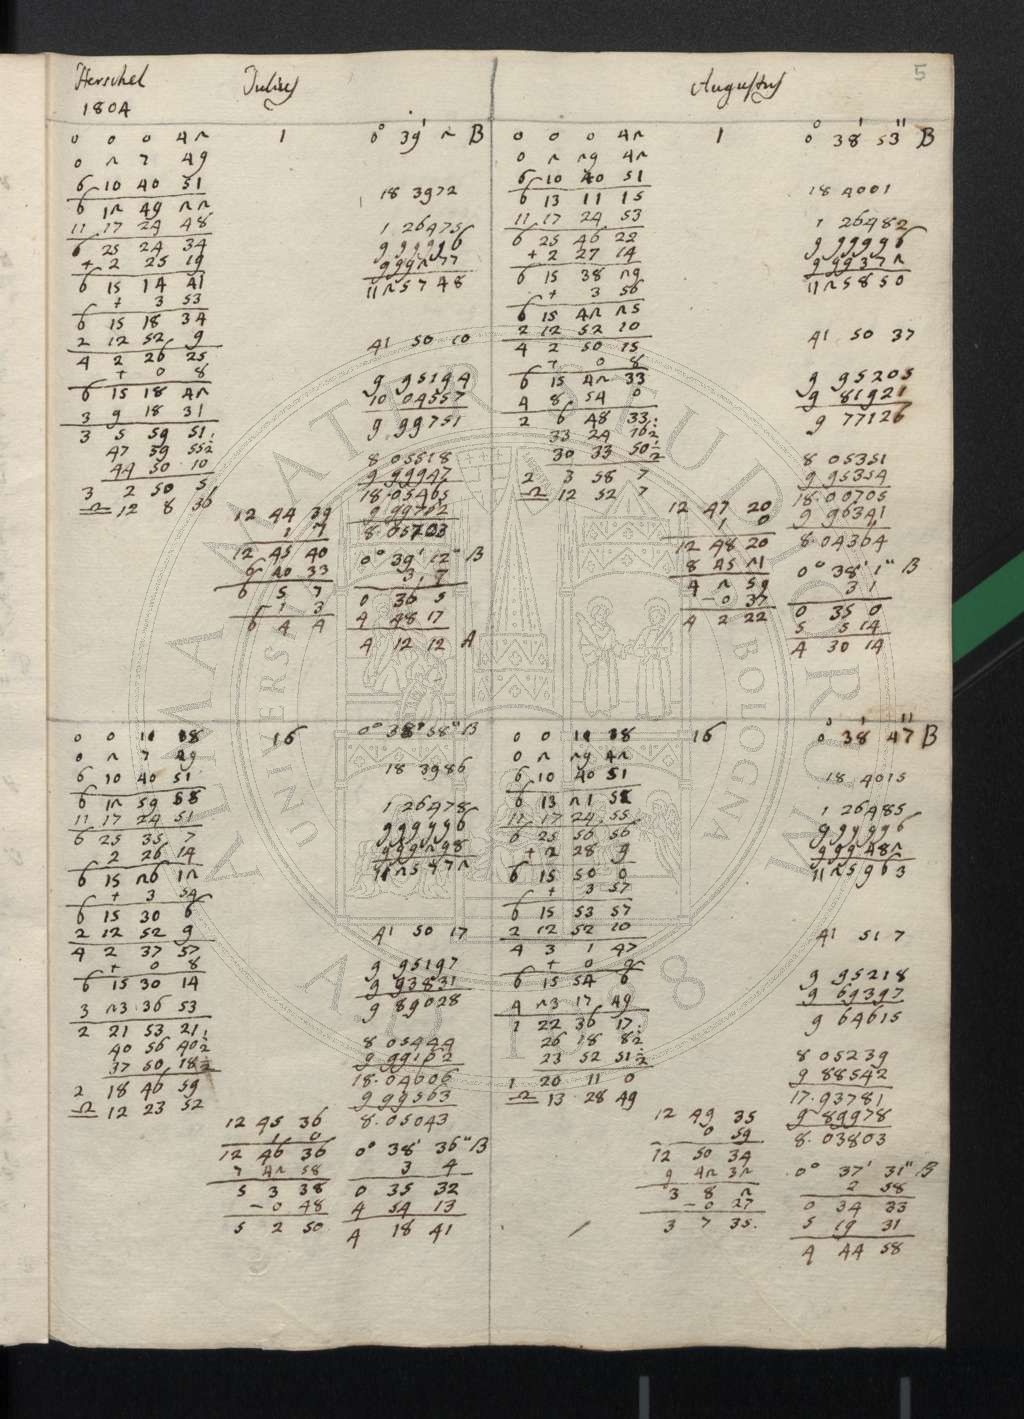 5
Herschel
1804
Julius
Augustus
0 0 0 42
0 2 7 49
6 10 40 51
6 12 49 22
11 17 24 48
6 25 24 34
+ 2 25 19
6 15 14 41
+ 3 53
6 15 18 34
2 12 52 9
4 2 26 25
+ 0 8
6 15 18 42
3 9 18 31
3 5 59 51
47 59 55½
44 50 10
3 2 50 5
♎ 12 8 36
1
12 44 39
1 1
12 45 40
6 40 33
6 5 7
1 3
6 4 4
0° 39' 2 B
18 3972
1 26475
999996
999277
1125748
41 50 10
9 95194
10 04557
9 99751
8 05518
9 99947
18.05465
9 99702
8.05703
0° 39' 12" B
3 7
0 36 5
4 48 17
4 12 12 A
0 0 0 42
0 2 29 42
6 10 40 51
6 13 11 15
11 17 24 53
6 25 46 22
+ 2 27 14
6 15 38 29
+ 3 56
6 15 42 25
2 12 52 10
4 2 50 15
+ 0 8
6 15 42 33
4 8 54 0
2 6 48 33
33 24 16½
30 33 50½
2 3 58 7
♎ 12 52 7
1
12 47 20
1 0
12 48 20
8 45 21
4 2 59
- 0 37
4 2 22
0° 38' 53" B
18 4001
1 26482
999996
999372
1125850
41 50 37
9 95205
9 81921
9 77126
8 05351
9 95354
18.00705
9 96341
8.04364
0° 38' 1" B
3 1
0 35 0
5 5 14
4 30 14
0 0 11 18
0 2 7 49
6 10 40 51
6 12 59 58
11 17 24 51
6 25 35 7
2 26 14
6 15 26 12
+ 3 54
6 15 30 6
2 12 52 9
4 2 37 57
+ 0 8
6 15 30 14
3 23 36 53
2 21 53 21
40 56 40½
37 50 18½
2 18 46 59
♎ 12 23 52
16
12 45 36
1 0
12 46 36
7 42 58
5 3 38
- 0 48
5 2 50
0° 38' 58" B
18 3986
1 26478
999996
999298
1125772
41 50 17
9 95197
9 93831
9 89028
8 05444
9 99162
18.04606
9 99563
8.05043
0° 38' 36" B
3 4
0 35 32
4 54 13
4 18 41
0 0 11 18
0 2 29 42
6 10 40 51
6 13 21 51
11 17 24 55
6 25 56 56
+ 2 28 9
6 15 50 0
+ 3 57
6 15 53 57
2 12 52 10
4 3 1 47
+ 0 9
6 15 54 6
4 23 17 49
1 22 36 17
26 18 8½
23 52 51½
1 20 11 0
♎ 13 28 49
16
12 49 35
0 59
12 50 34
9 42 32
3 8 2
- 0 27
3 7 35
0° 38' 47" B
18 4015
1 26485
999996
999482
1125963
41 51 7
9 95218
9 69397
9 64615
8 05239
9 88542
17.93781
9 89978
8.03803
0° 37' 31" B
2 58
0 34 33
5 19 31
4 44 58
ALMA MATER STUDIORUM
UNIVERSITÀ DI BOLOGNA
A.D. 1088